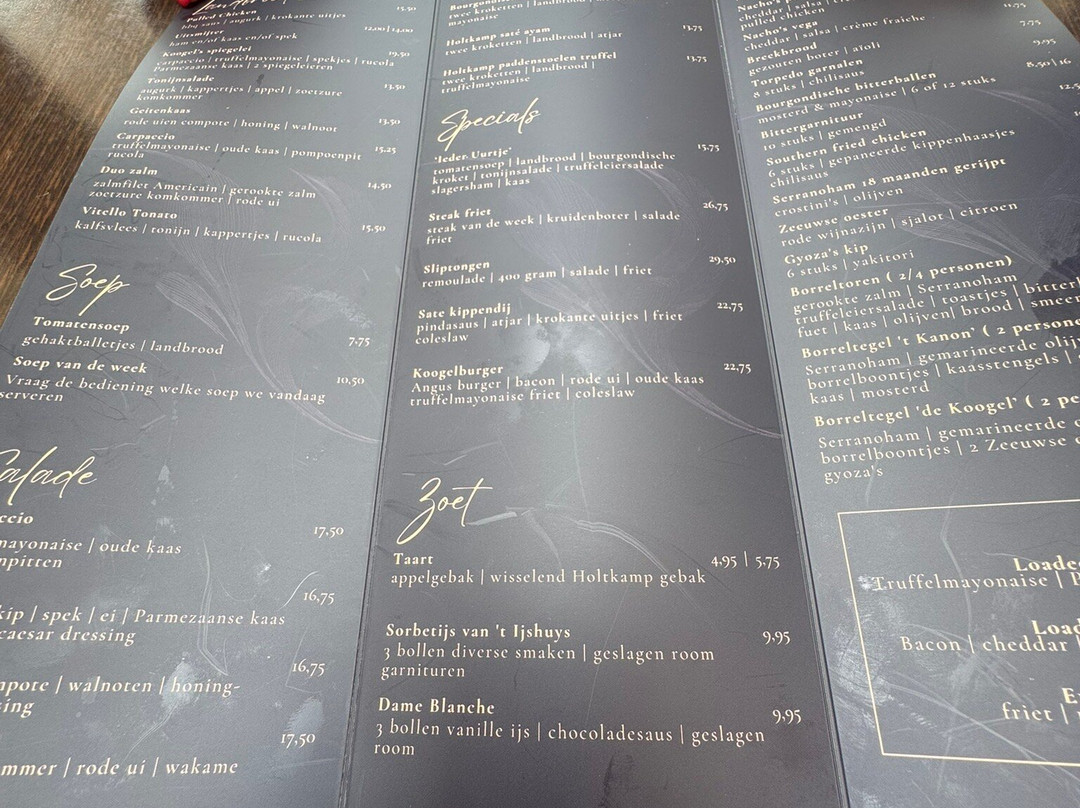 Pulled Chicken 13,50
bbq saus | augurk | krokante uitjes
Uitsmijter 12,00 | 14,00
ham en/of kaas en/of spek
Koogel's spiegelei 19,50
carpaccio | truffelmayonaise | spekjes | rucola
Parmezaanse kaas | 2 spiegeleieren
Tonijnsalade 13,50
augurk | kappertjes | appel | zoetzure
komkommer
Geitenkaas 13,50
rode uien compote | honing | walnoot
Carpaccio 15,25
truffelmayonaise | oude kaas | pompoenpit
rucola
Duo zalm 14,50
zalmfilet Americain | gerookte zalm
zoetzure komkommer | rode ui
Vitello Tonato 15,50
kalfsvlees | tonijn | kappertjes | rucola
Soep
Tomatensoep 7,75
gehaktballetjes | landbrood
Soep van de week 10,50
Vraag de bediening welke soep we vandaag
serveren
alade
ccio 17,50
mayonaise | oude kaas
npitten
16,75
kip | spek | ei | Parmezaanse kaas
caesar dressing
16,75
mpote | walnoten | honing-
sing
17,50
mmer | rode ui | wakame
twee kroketten | landbrood |
mayonaise
Holtkamp saté ayam 13,75
twee kroketten | landbrood | atjar
Holtkamp paddenstoelen truffel 13,75
twee kroketten | landbrood |
truffelmayonaise
Specials
'Ieder Uurtje' 15,75
tomatensoep | landbrood | bourgondische
kroket | tonijnsalade | truffeleiersalade
slagersham | kaas
Steak friet 26,75
steak van de week | kruidenboter | salade
friet
Sliptongen 29,50
remoulade | 400 gram | salade | friet
Sate kippendij 22,75
pindasaus | atjar | krokante uitjes | friet
coleslaw
Koogelburger 22,75
Angus burger | bacon | rode ui | oude kaas
truffelmayonaise friet | coleslaw
Zoet
Taart 4,95 | 5,75
appelgebak | wisselend Holtkamp gebak
Sorbetijs van 't Ijshuys 9,95
3 bollen diverse smaken | geslagen room
garnituren
Dame Blanche 9,95
3 bollen vanille ijs | chocoladesaus | geslagen
room
Nacho's p 11,75
cheddar | salsa |
pulled chicken
Nacho's vega 7,75
cheddar | salsa | crème fraiche
Breekbrood 9,95
gezouten boter | aïoli
Torpedo garnalen 8,50 | 16
8 stuks | chilisaus
Bourgondische bitterballen 12,5
mosterd & mayonaise | 6 of 12 stuks
Bittergarnituur
10 stuks | gemengd
Southern fried chicken
6 stuks | gepaneerde kippenhaasjes
chilisaus
Serranoham 18 maanden gerijpt
crostini's | olijven
Zeeuwse oester
rode wijnazijn | sjalot | citroen
Gyoza's kip
6 stuks | yakitori
Borreltoren ( 2/4 personen)
gerookte zalm | Serranoham
truffeleiersalade | toastjes | bitterb
fuet | kaas | olijven| brood | smeer
Borreltegel 't Kanon' ( 2 persone
Serranoham | gemarineerde olijv
borrelboontjes | kaasstengels |
kaas | mosterd
Borreltegel 'de Koogel' ( 2 pe
Serranoham | gemarineerde o
borrelboontjes | 2 Zeeuwse o
gyoza's
Loade
Truffelmayonaise | P
Load
Bacon | cheddar |
E
friet |